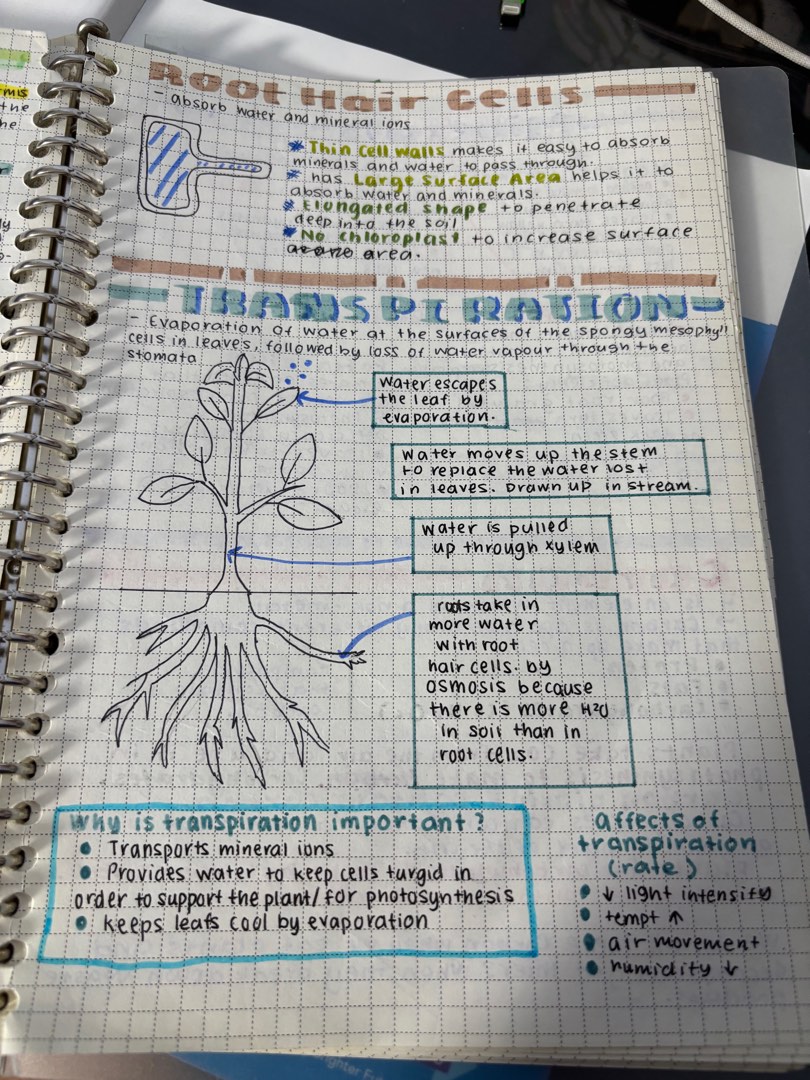 Root Hair Cells
- absorb water and mineral ions
* Thin cell walls makes it easy to absorb
minerals and water to pass through.
* has Large Surface Area helps it to
absorb water and minerals.
* Elongated shape to penetrate
deep into the soil
* No chloroplast to increase surface
area.
TRANSPIRATION
- Evaporation of water at the surfaces of the spongy mesophyll
cells in leaves, followed by loss of water vapour through the
stomata
Water escapes
the leaf by
evaporation.
Water moves up the stem
to replace the water lost
in leaves. Drawn up in stream.
Water is pulled
up through xylem
roots take in
more water
with root
hair cells. by
osmosis because
there is more H2O
in soil than in
root cells.
Why is transpiration important?
• Transports mineral ions
• Provides water to keep cells turgid in
order to support the plant/for photosynthesis
• keeps leafs cool by evaporation
affects of
transpiration
(rate)
• ↓ light intensity
• tempt ↑
• air movement
• humidity ↓